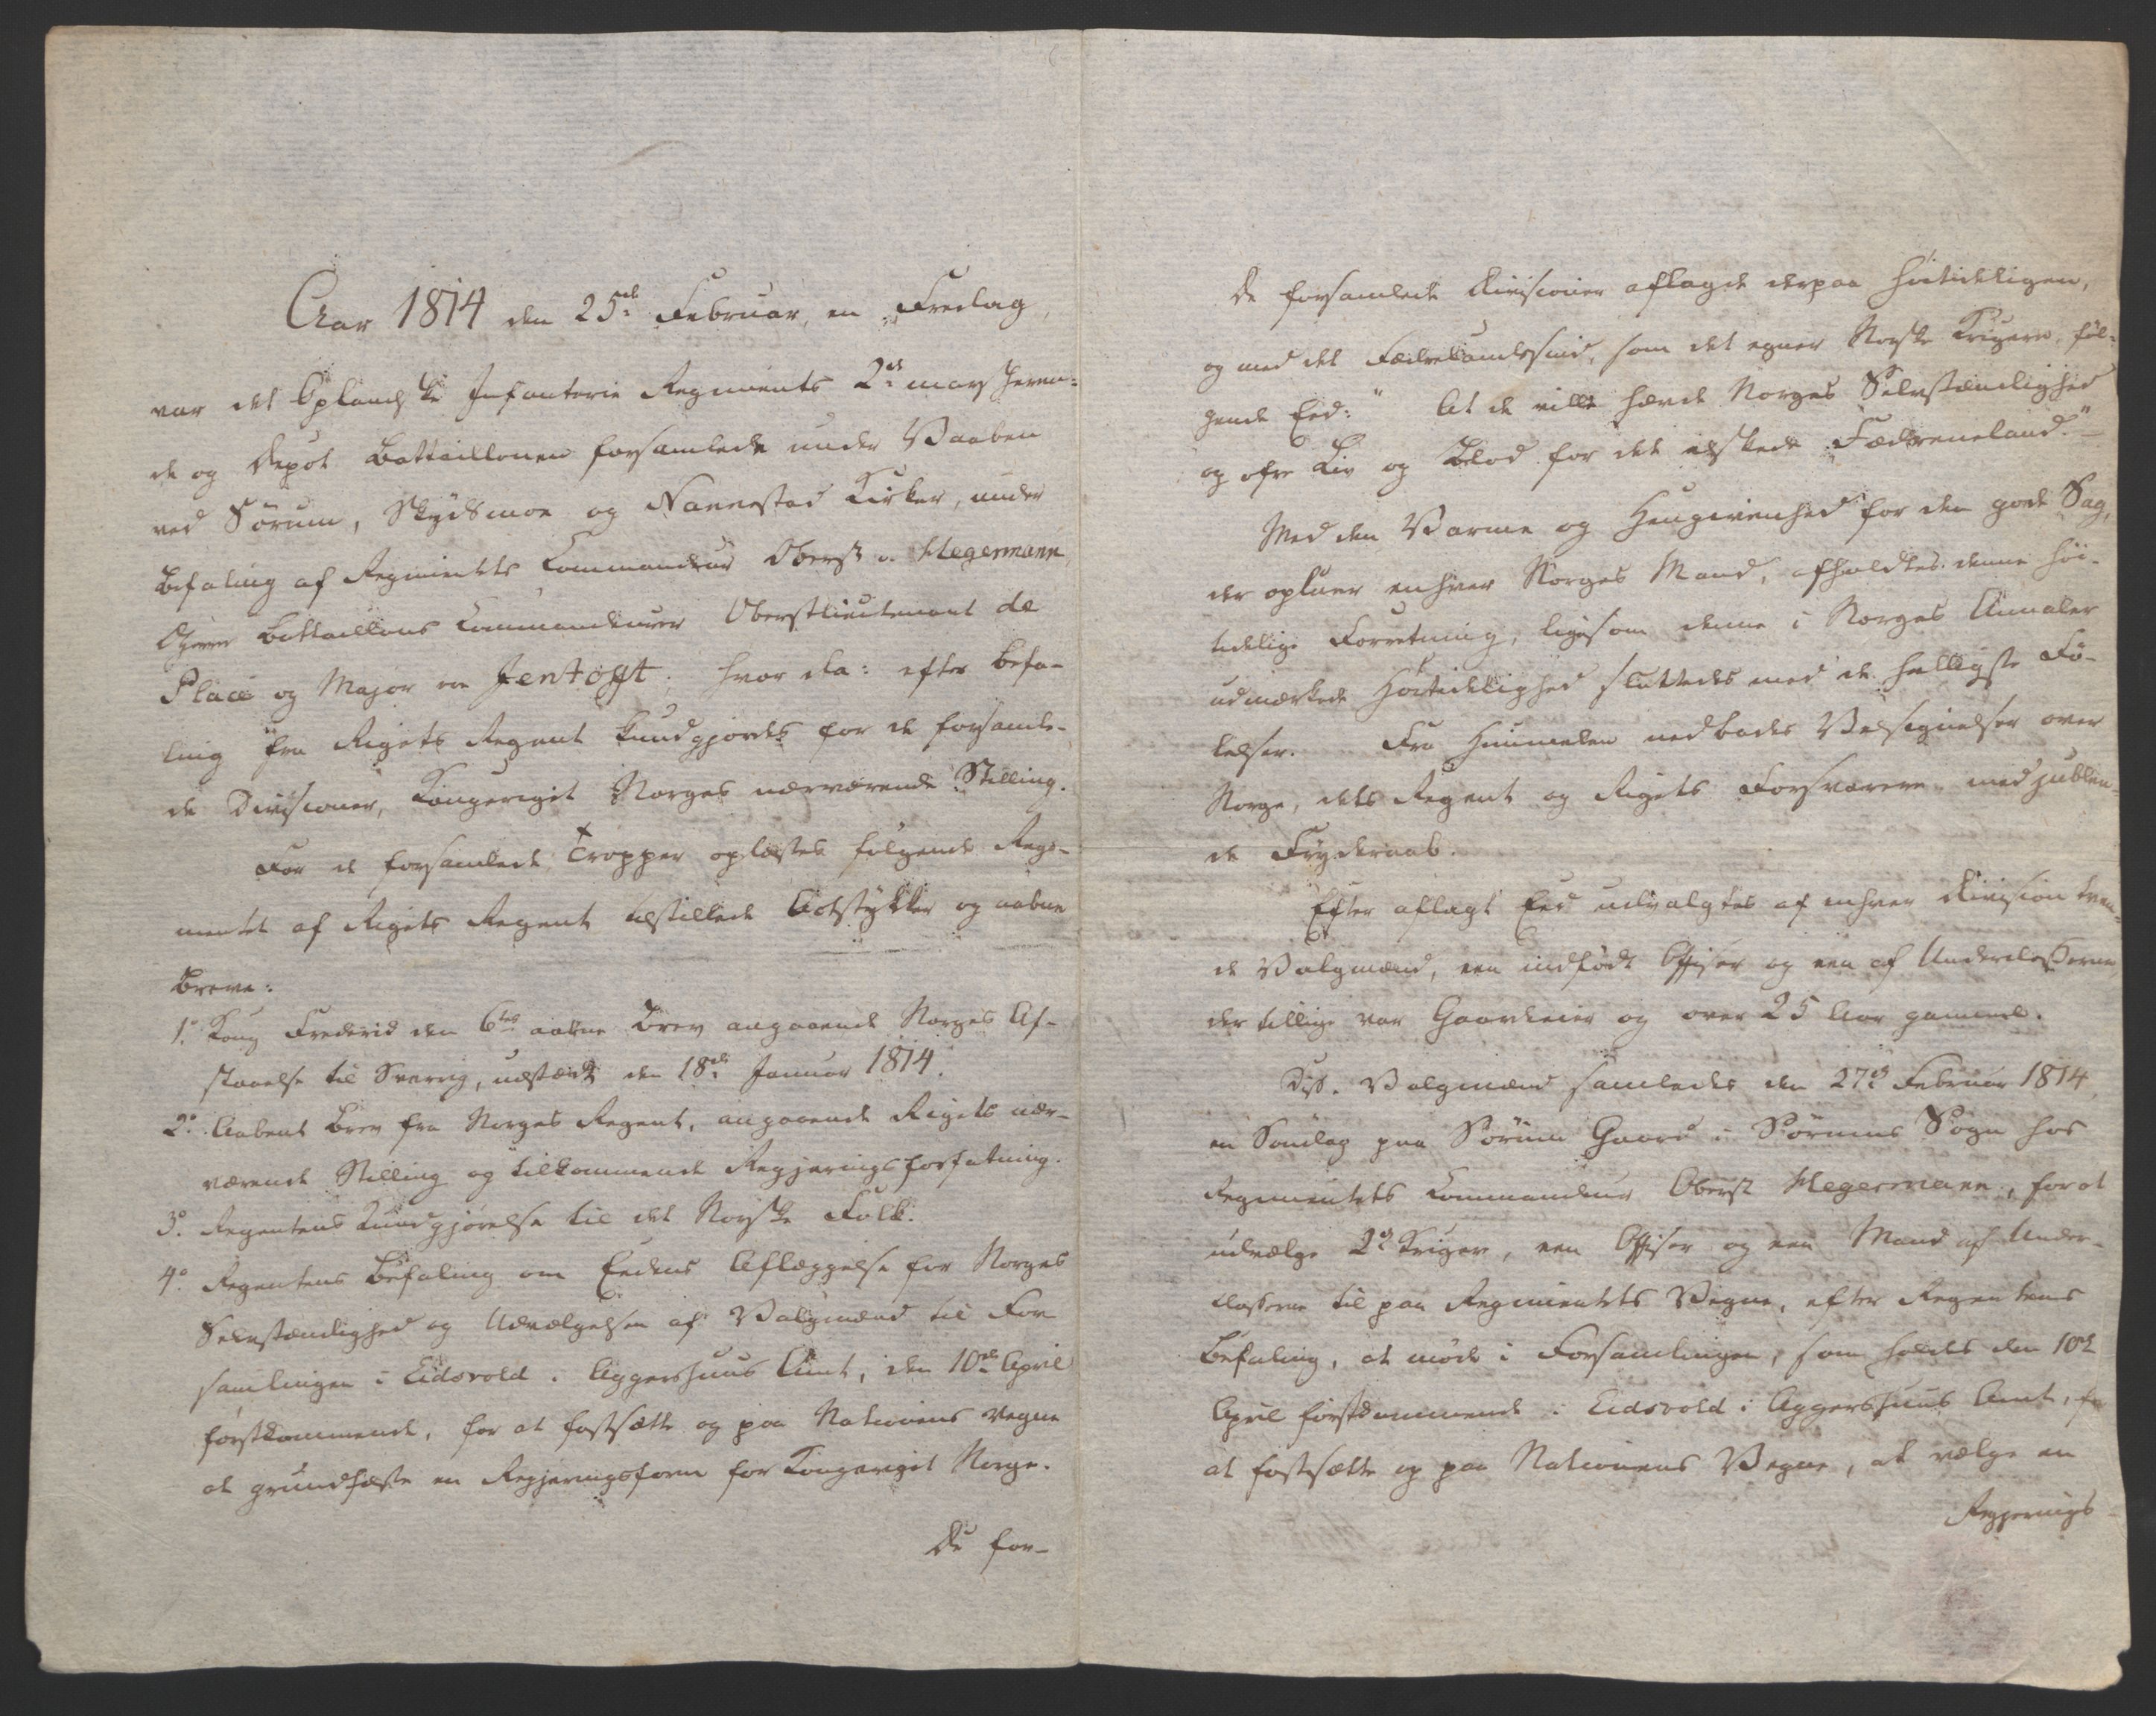 Aar 1814 den 25de Februar, en Fredag,
var det Oplandske Infanterie Regiments 2de marscheren-
de og Depot Battaillonen forsamlede under Vaaben
ved Sørum, Skydsmoe og Nannestad Kirker, under
Befaling af Regimentets Commandeur Oberst v. Hegermann,
Battaillons Commandeurer Oberstlieutenant de
Place og Major von Jentoft; hvor da: efter Befa-
ling fra Rigets Regent kundgjordes for de forsamle-
de Divisioner, Kongeriget Norges nærværende Stilling.
For de forsamlede Tropper oplæstes følgende Regi-
mentet af Rigets Regent tilstillede Actstykker og aabne
Breve:
1o. Kong Frederid den 6tes aabne Brev angaaende Norges Af-
staaelse til Sverrig, udstædt den 18de Januar 1814.
2o. Aabent Brev fra Norges Regent, angaaende Rigets nær-
værende Stilling og tilkommende Regjeringsforfatning.
3o. Regentens Kundgjørelse til det Norske Folk.
4o. Regentens Befaling om Eedens Aflæggelse for Norges
Selvstændighed og Udvælgelsen af Valgmænd til For
samlingen i Eidsvold i Aggershuus Amt, den 10de April
førstkommende, for at fastsætte og paa Nationens Vegne
at grundfæste en Regjeringsform for Kongeriget Norge.
De for-
De forsamlede Divisioner aflagde derpaa høitideligen,
og med det Fædrelandssind, som det egner Norske Krigere, føl-
gende Eed: "At de ville hævde Norges Selvstændighed
og ofre Liv og Blod for det elskede Fædreneland." -
Med den Varme og Hengivenhed for den gode Sag,
der opluer enhver Norges Mand, afholdtes denne høi-
tidelige Forretning, ligesom denne i Norges Annaler
udmærkede Høitidelighed sluttedes med de helligste Fø-
lelser. Fra Himmelen nedbades Velsignelser over
Norge, dets Regent og Rigets Forsvarere med jublen-
de Fryderaab.
Efter aflagt Eed udvalgtes af enhver Division tven-
de Valgmænd, een indfødt Officer og een af Underclasserne,
der tillige var Gaardeier og over 25 Aar gammel.
Disse Valgmænd samledes den 27de Februar 1814,
en Søndag paa Sørum Gaard i Sørums Sogn hos
Regimentets Commandeur Oberst Hegermann, for at
udvælge 2de Kriger, een Officer og een Mand af Under-
classerne til paa Regimentets Vegne, efter Regentens
Befaling, at møde i Forsamlingen, som holdes den 10de
April førstkommende i Eidsvold i Aggershuus Amt, for
at fastsætte og paa Nationens Vegne, at vælge en
Regjerings-